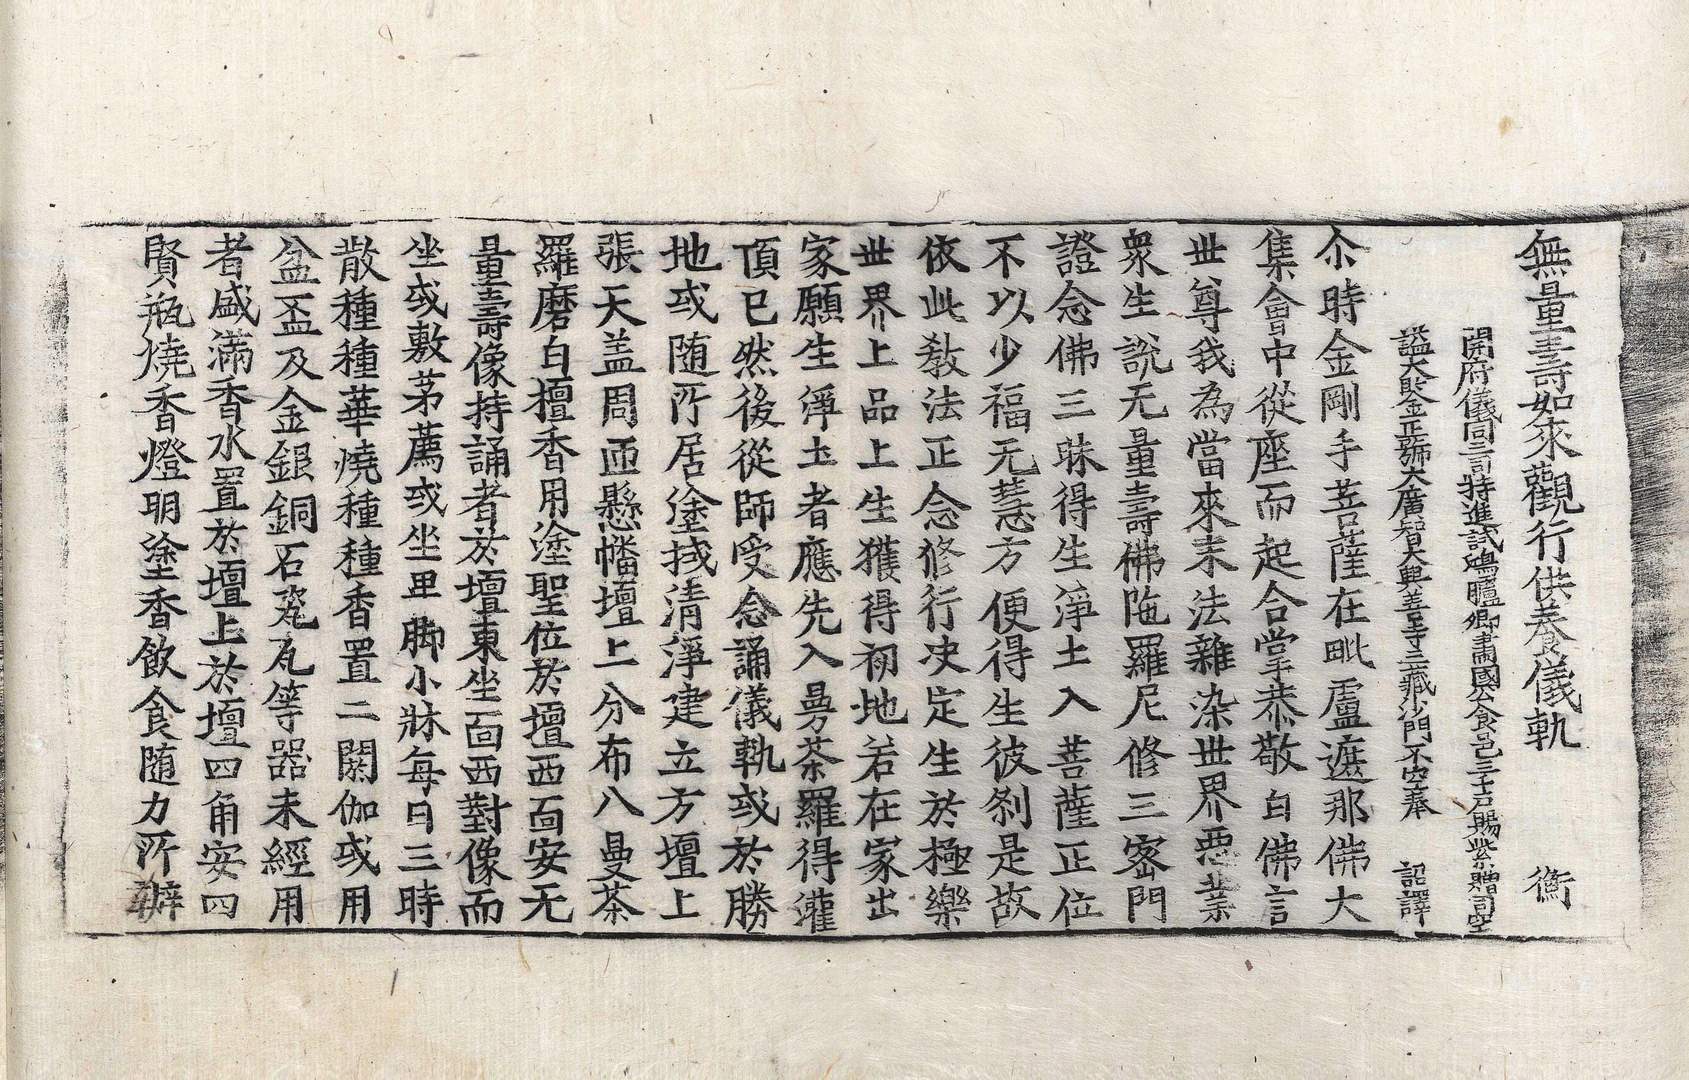 無量壽如來觀行供養儀軌 衡
開府儀同三司特進試鴻臚卿肅國公食邑三千戶賜紫贈司空
謚大鑒正號大廣智大興善寺三藏沙門不空奉 詔譯
尒時金剛手菩薩在毗盧遮那佛大
集會中從座而起合掌恭敬白佛言
世尊我為當來末法雜染世界悪業
衆生說无量壽佛陁羅尼修三密門
證念佛三昧得生淨土入菩薩正位
不以少福无慧方便得生彼剎是故
依此教法正念修行决定生於極樂
世界上品上生獲得初地若在家出
家願生淨土者應先入曼茶羅得灌
頂已然後從師受念誦儀軌或於勝
地或随所居塗拭清淨建立方壇上
張天盖周匝懸幡壇上分布八曼茶
羅磨白檀香用塗聖位於壇西面安无
量壽像持誦者於壇東坐面西對像而
坐或敷茅薦或坐卑脚小牀每日三時
散種種華燒種種香置二閼伽或用
盆盃及金銀銅石瓷瓦等器未經用
者盛滿香水置於壇上於壇四角安四
賢瓶燒香燈明塗香飲食随力所辦